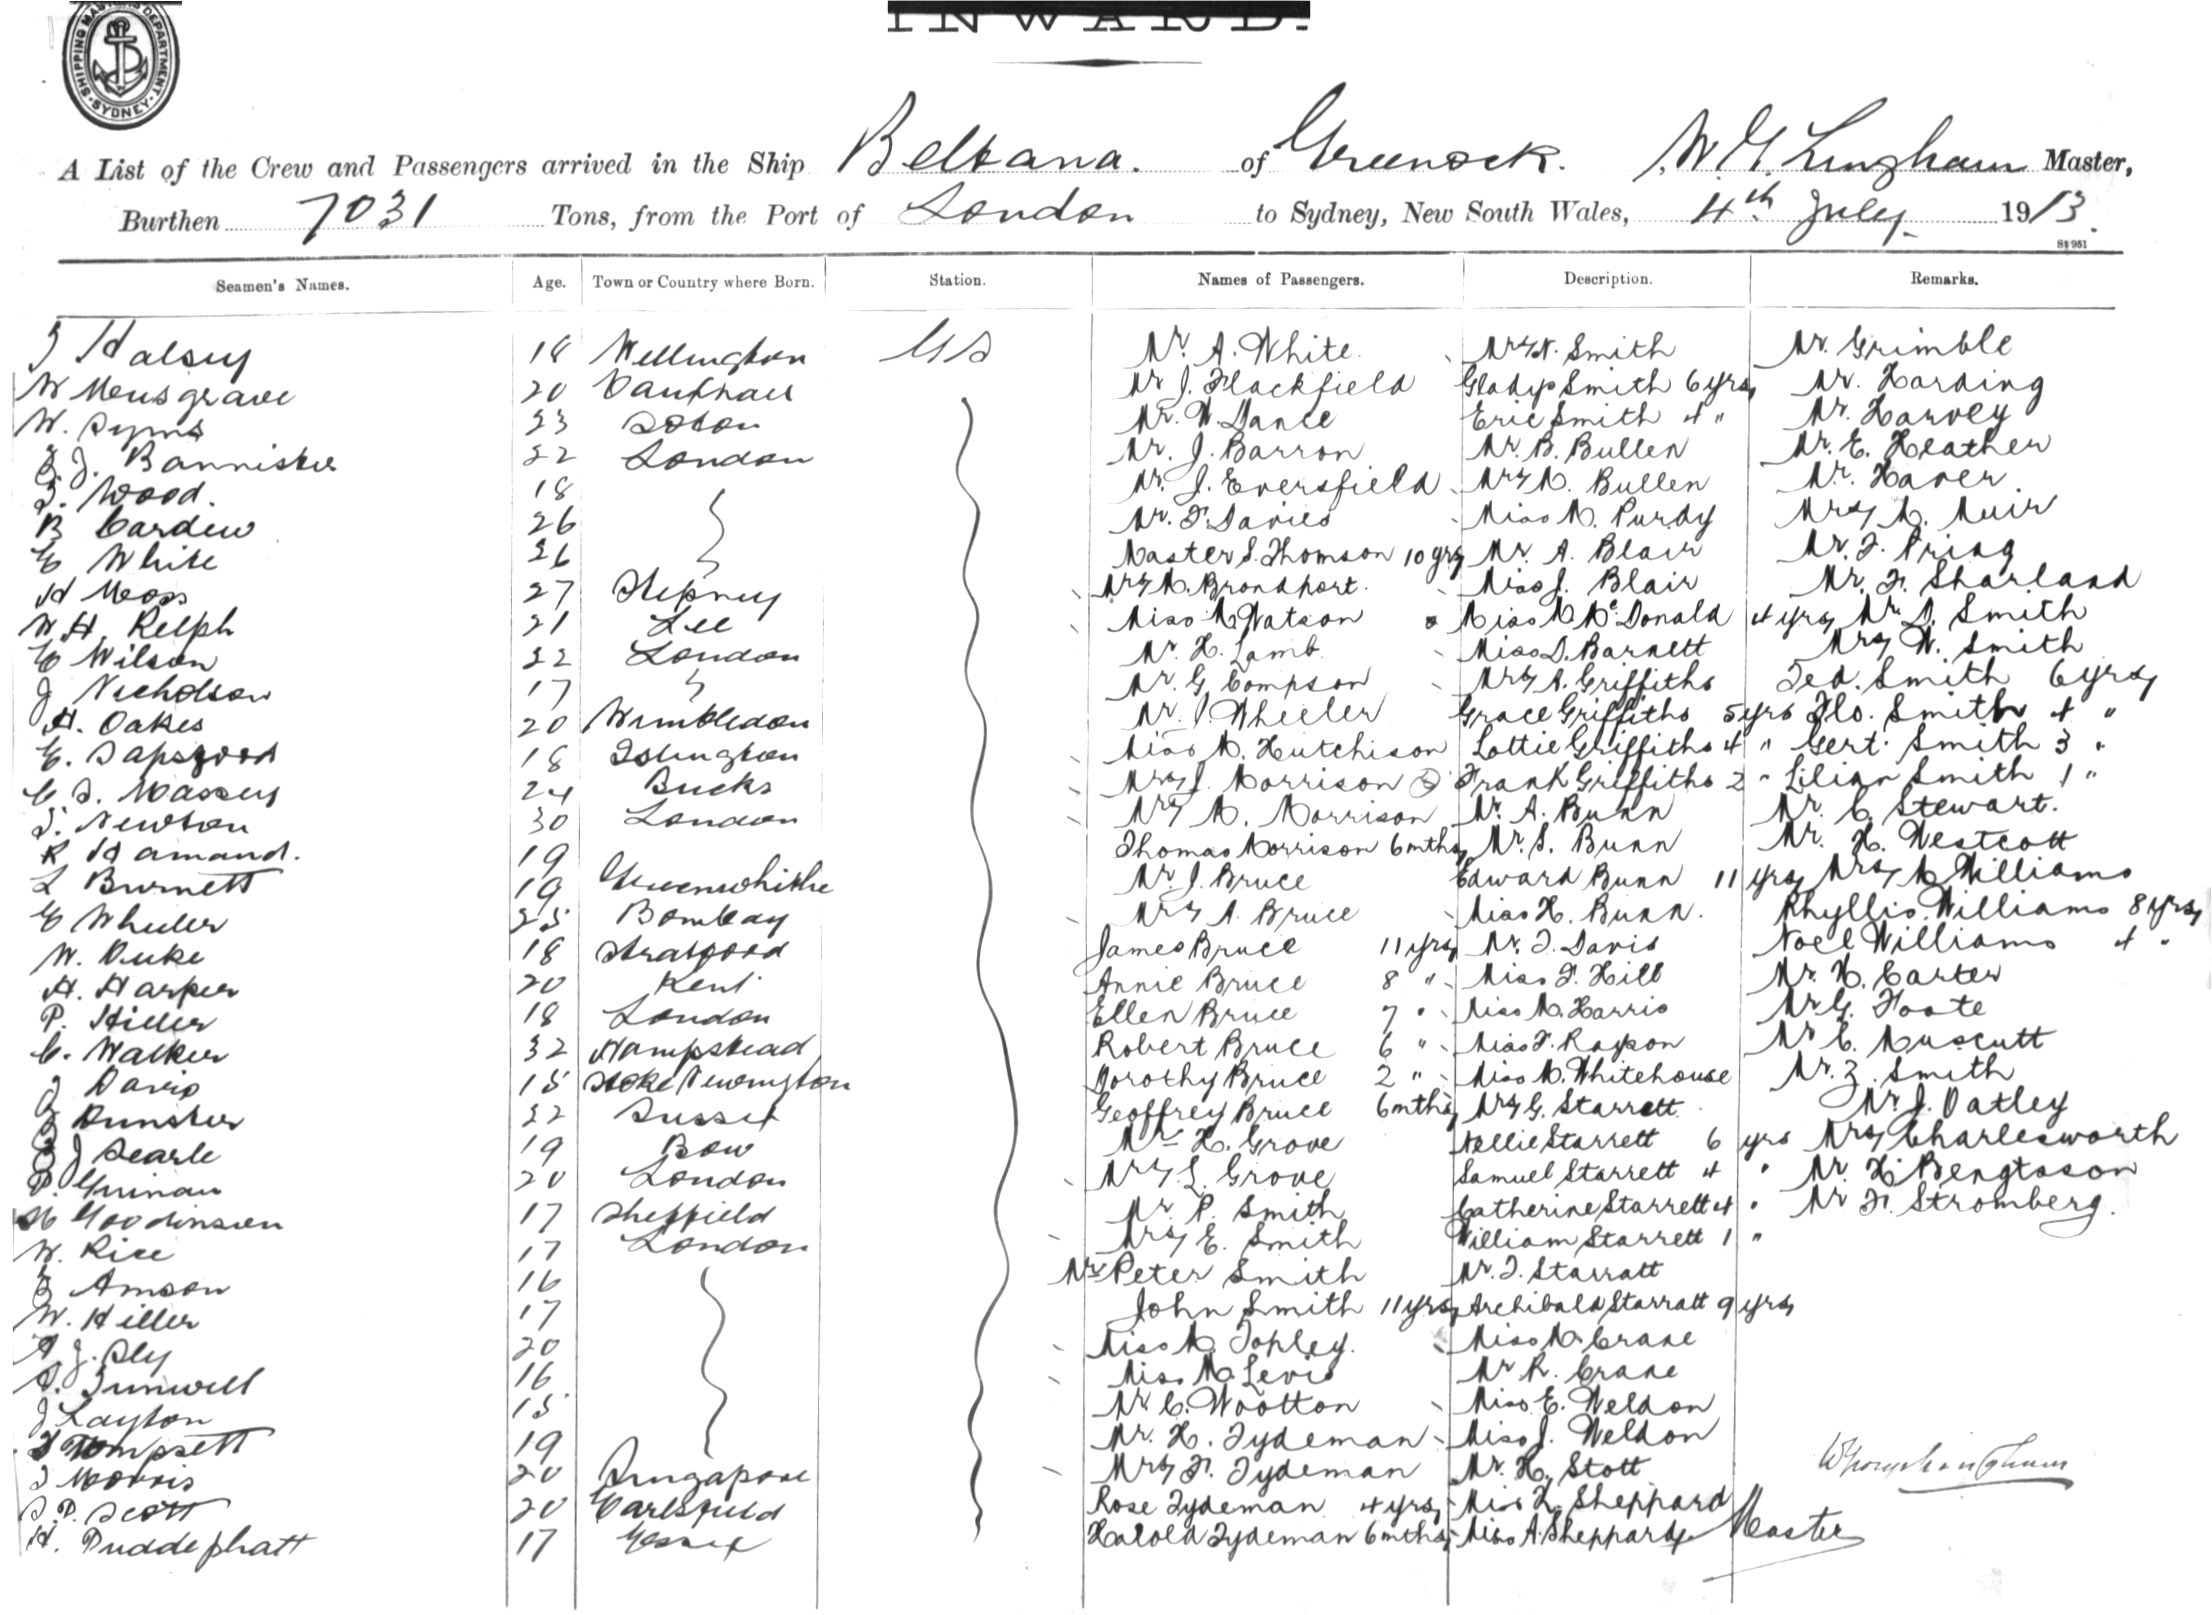 SHIPPING MASTER'S DEPARTMENT
SYDNEY
INWARD.
A List of the Crew and Passengers arrived in the Ship Beltana. of Greenock. W. G. Lingham Master,
Burthen 7031 Tons, from the Port of London to Sydney, New South Wales, 4th July 1913.
Seamen's Names. Age. Town or Country where Born. Station. Names of Passengers. Description. Remarks.
Halsey 18 Wellington GS Mr. A. White Mrs N. Smith Mr. Grimble
W Musgrave 20 Vauxhall Mr J. Flackfield Gladys Smith 6 yrs Mr. Harding
W. Syms 23 Mr. W. Dance Eric Smith 4 " Mr. Harvey
J. Bannister 22 London Mr. J. Barron Mr. B. Bullen Mr. E. Heather
Wood. 18 Mr. J. Eversfield Mrs M. Bullen Mr. Haver
B Cardew 26 Mr. F. Davies Miss M. Purdy Mrs M. Muir
E White 26 Master S. Thomson 10 yrs Mr. A. Blair Mr. F. Pring
H Moss 27 Stepney Mrs M. Brondhort. Miss J. Blair Mr. F. Sharland
W. H. Relph 21 Lee Miss M Watson Miss M McDonald 4 yrs Mr. D. Smith
E Wilson 22 London Mr. H. Lamb Miss D. Barnett Mrs W. Smith
J Nicholson 17 Mr. G Compson Mrs A. Griffiths Ted. Smith 6 yrs
H. Oakes 20 Wimbledon Mr. J Wheeler Grace Griffiths 5 yrs Flo. Smith 4 "
E. Sapsford 18 Islington Miss M. Hutchison Lottie Griffiths 4 " Gert. Smith 3 "
C. S. Massey 24 Bucks Mrs J. Morrison Frank Griffiths 2 " Lilian Smith 1 "
Newton 30 London Mrs M. Morrison Mr. A. Bunn Mr. C. Stewart.
R Hamand. 19 Thomas Morrison 6 mths Mr. S. Bunn Mr. H. Westcott
L Burnett 19 Greenwhithe Mr. J. Bruce Edward Bunn 11 yrs Mrs M Williams
E Wheeler 25 Bombay Mrs A. Bruce Miss H. Bunn. Phyllis Williams 8 yrs
W. Duke 18 Stratford James Bruce 11 yrs Mr. J. Davis Noel Williams 4 "
H. Harper 20 Kent Annie Bruce 8 " Miss F. Hill Mr. H. Carter
P. Hiller 18 London Ellen Bruce 7 " Miss M. Harris Mr G. Foote
C. Walker 32 Hampstead Robert Bruce 6 " Miss F. Rayson Mr C. Muscutt
J Davis 18 Stoke Newington Dorothy Bruce 2 " Miss M. Whitehouse Mr. Z. Smith
Dunster 22 Sussex Geoffrey Bruce 6 mths Mrs G. Starrett Mr. J. Oatley
J Searle 19 Bow Mr H. Grove Nellie Starrett 6 yrs Mrs Charlesworth
P. Guinan 20 London Mrs L. Grove Samuel Starrett 4 " Mr. H. Bengtsson
Goodinson 17 Sheffield Mr. P. Smith Catherine Starrett 4 " Mr F. Stromberg.
W. Rice 17 London Mrs E. Smith William Starrett 1 "
Amson 16 Mr Peter Smith Mr. J. Starratt
W. Hiller 17 John Smith 11 yrs Archibald Starratt 9 yrs
A J. Sly 20 Miss M. Topley. Miss M. Crane
Tunwell 16 Miss M. Levis Mr R. Crane
J Layton 15 Mr C. Wootton Miss E. Weldon
Tompsett 19 Mr. H. Tydeman Miss J. Weldon
Morris 20 Singapore Mrs F. Tydeman Mr. H. Stott
P. Scott 20 Earlsfield Rose Tydeman 4 yrs Miss L. Sheppard
H. Puddephatt 17 Essex Harold Tydeman 6 mths Miss A. Sheppard Master